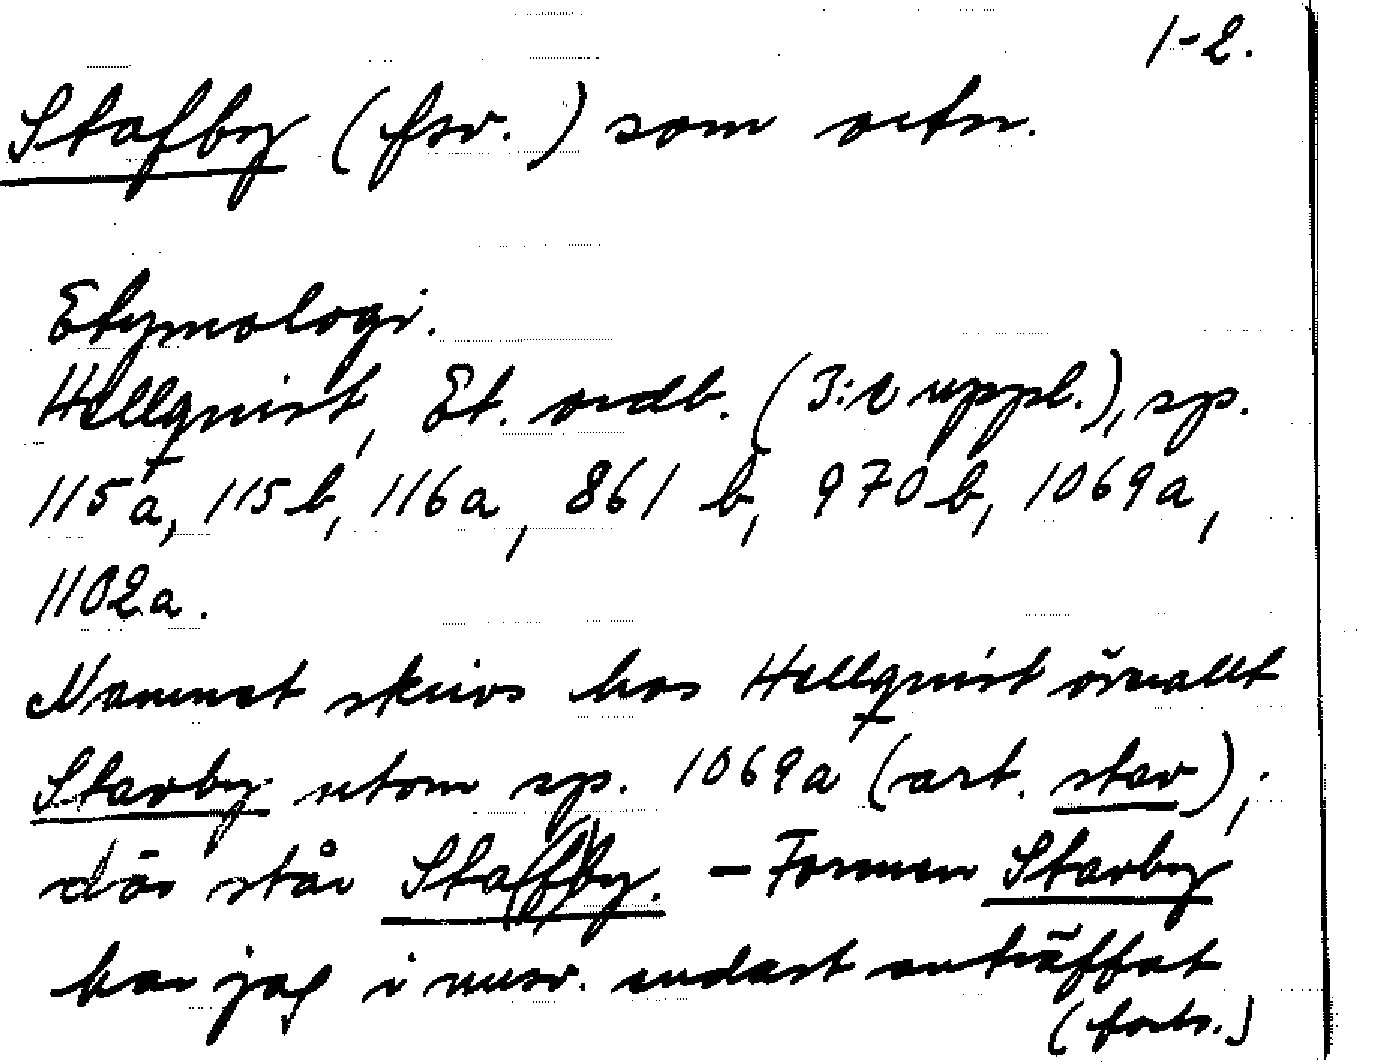 1-2.
Stafby (fsv.) som ortn.
Etymologi.
Hellquist, Et. ordb. (3:e uppl.), sp.
115a, 115b, 116a, 861b, 970b, 1069a,
1102a.
Namnet skrivs hos Hellquist överallt
Stavby utom sp. 1069a (art. stav);
där står Sta(f)by. – Formen Stavby
har jag i nusv. endast anträffat
(forts.)